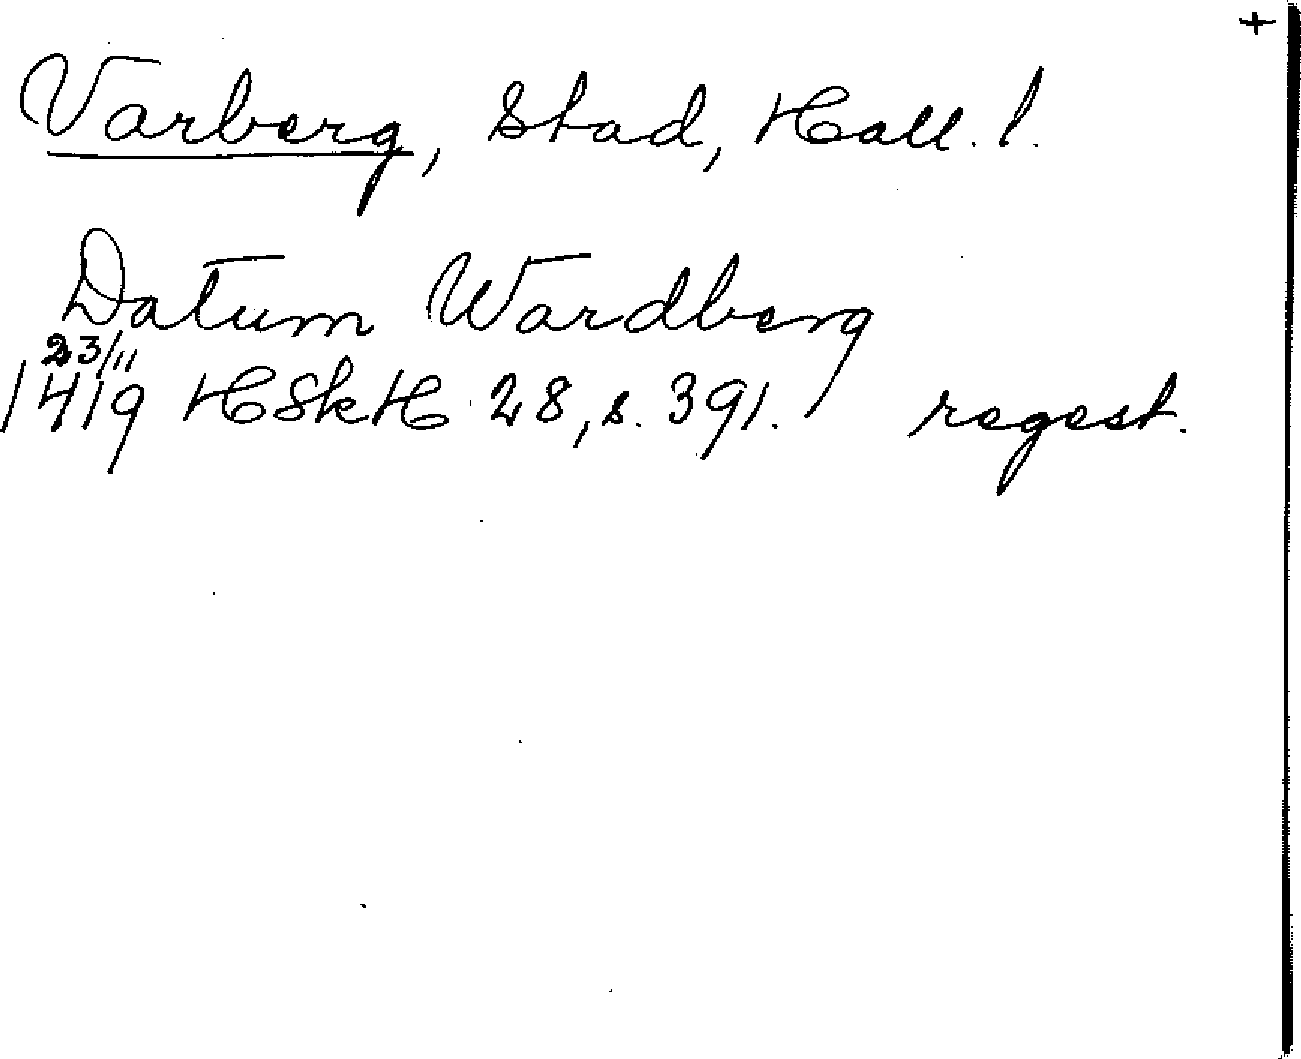 +
Varberg, Stad, Hall. l.
Datum Wardberg
23/11
1419 HSkH 28, s. 391. regest.